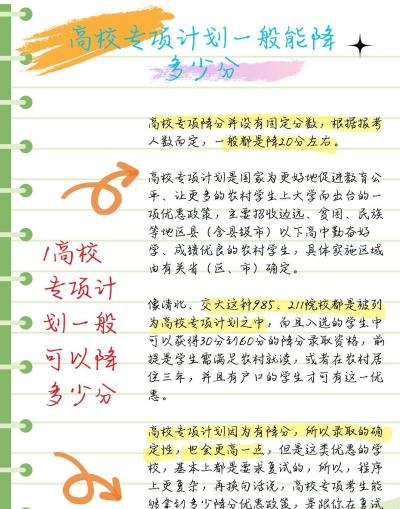 高校专项计划一般能降
多少分
高校专项降分并没有固定分数，根据报考
人数而定，一般都是降20分左右。
高校专项计划是国家为更好地促进教育公
平、让更多的农村学生上大学而出台的一
项优惠政策，主要招收边远、贫困、民族
等地区县（含县级市）以下高中勤奋好
学、成绩优良的农村学生，具体实施区域
由有关省（区、市）确定。
1高校
专项计
划一般
可以降
多少分
像清北、交大这种985、211院校都是被列
为高校专项计划之中，而且入选的学生中
可以获得30分到60分的降分录取资格，前
提是学生需满足农村就读，或者在农村居
住三年，并且有户口的学生才可有这一优
惠。
高校专项计划因为有降分，所以录取的确
定性，也会更高一点，但是这类优惠的学
校，基本上都是要求复试的，所以，程序
上更复杂，再换句话说，高校专项考生能
够拿到多少降分优惠政策，是跟你在复试